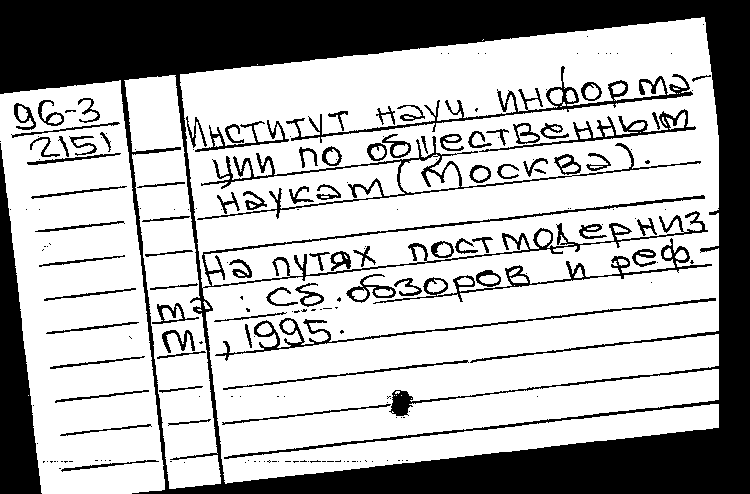 96-3
2151
Институт науч. информа-
ции по общественным
наукам (Москва).
На путях постмодерниз-
ма : Сб. обзоров и реф. -
М., 1995.